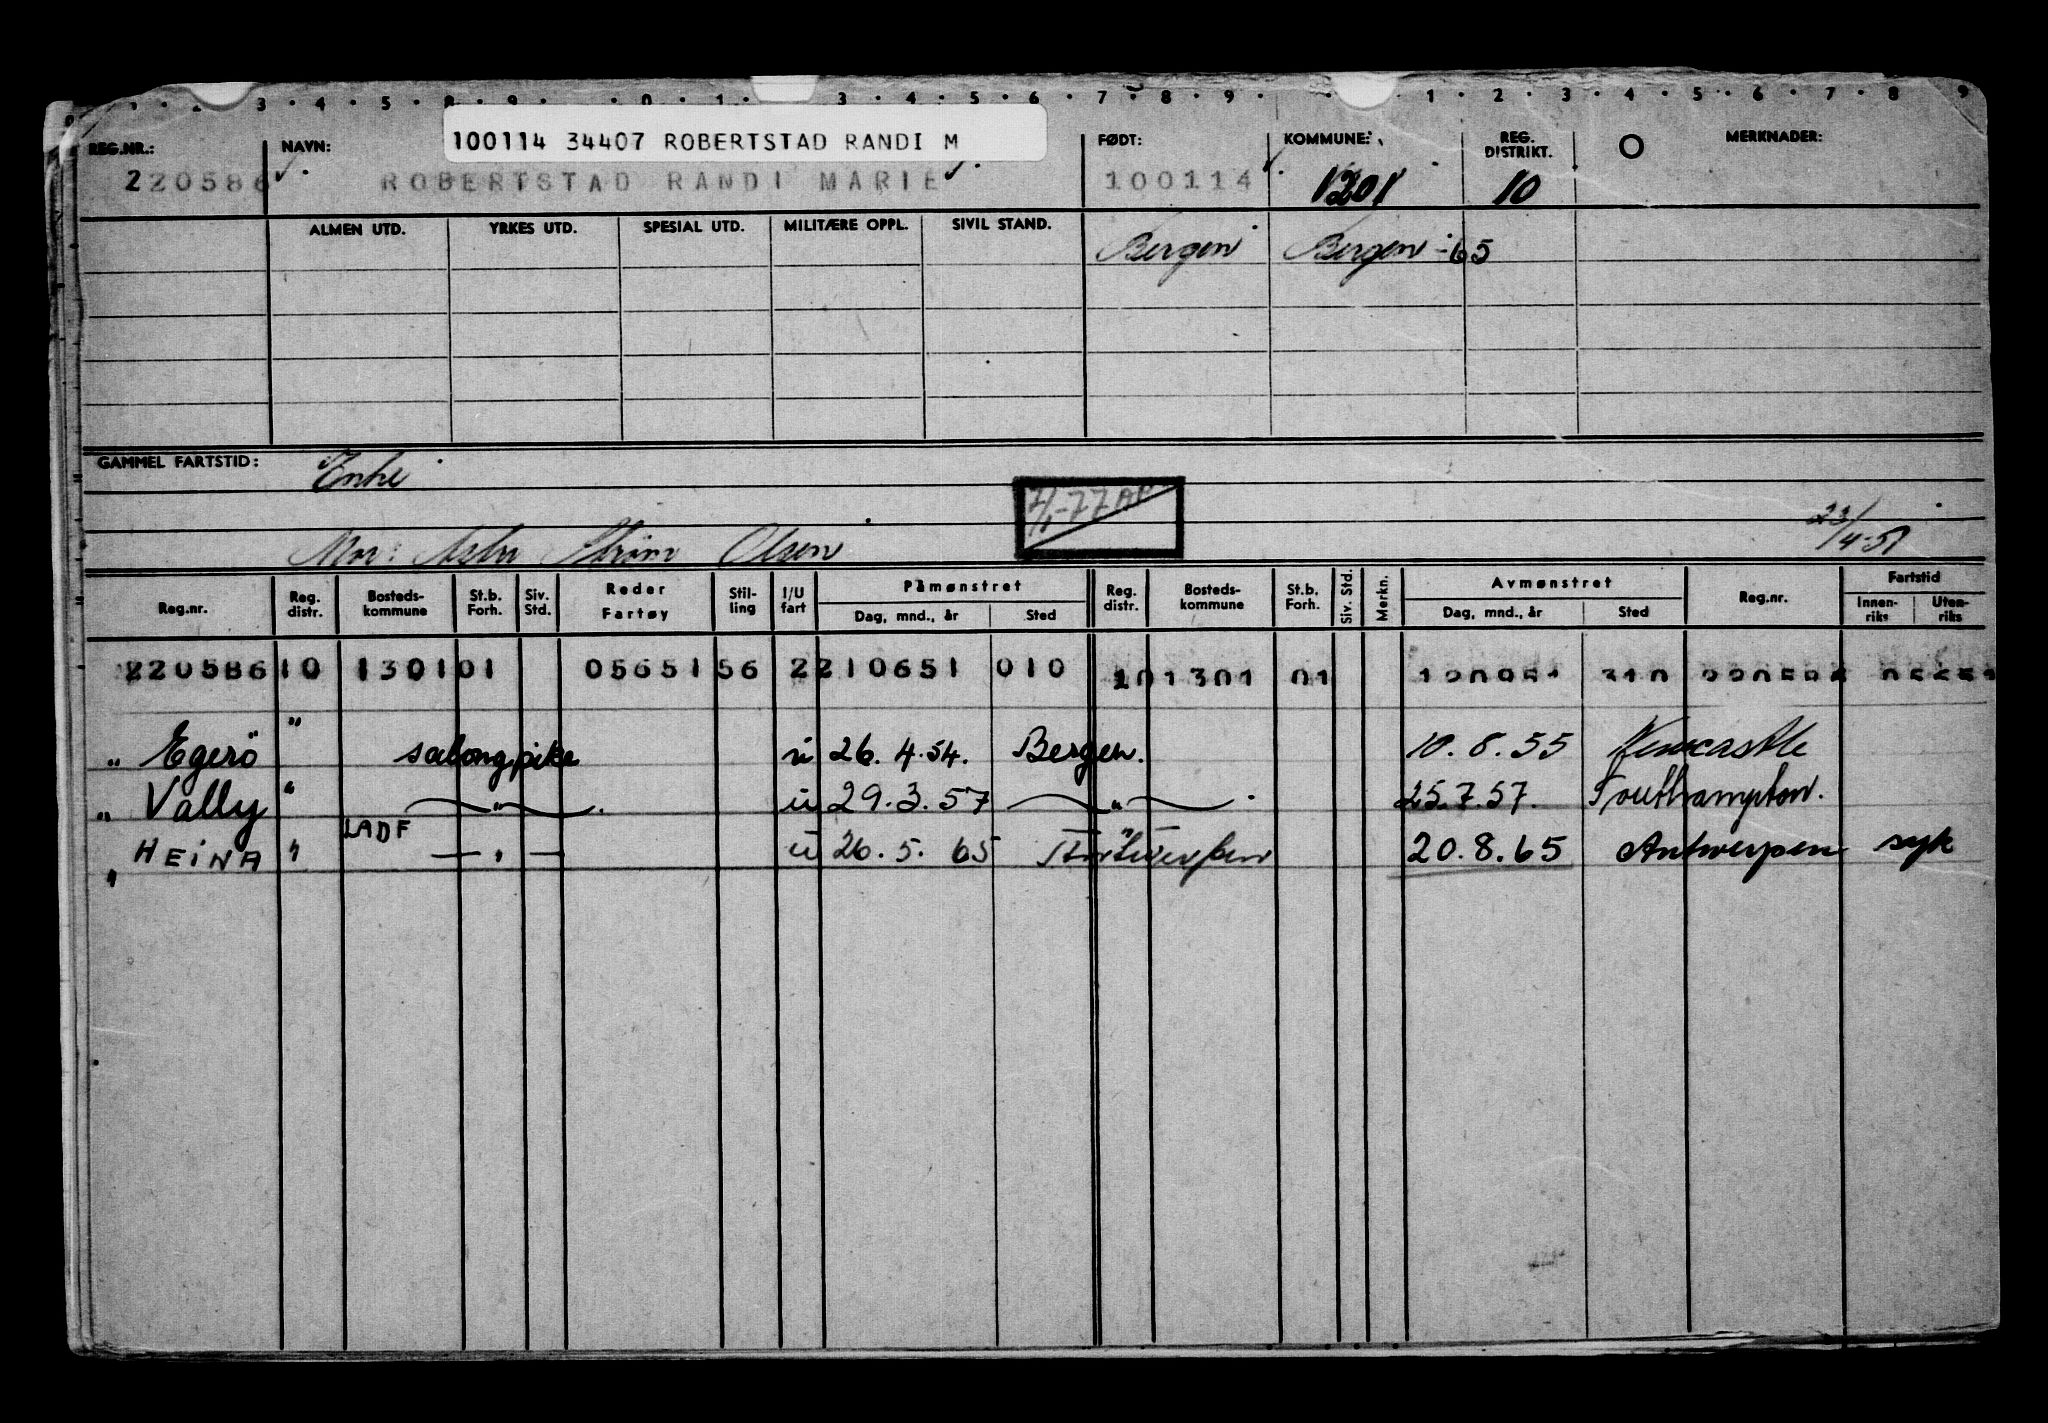 100114 34407 ROBERTSTAD RANDI M
REG.NR.: NAVN: FØDT: KOMMUNE: REG. DISTRIKT. MERKNADER:
220586 ROBERTSTAD RANDI MARIE 100114 1201 10
ALMEN UTD. YRKES UTD. SPESIAL UTD. MILITÆRE OPPL. SIVIL STAND. Bergen Bergen -65
GAMMEL FARTSTID: Enke
7/1-77
Mor: Olsen 23/4-51
Reg.nr. Reg. distr. Bosteds-kommune St.b. Forh. Siv. Std. Reder Fartøy Stil-ling I/U fart Påmønstret Dag, mnd., år Sted Reg. distr. Bosteds-kommune St.b. Forh. Siv. Std. Merkn. Avmønstret Dag, mnd., år Sted Reg.nr. Fartstid Innen-riks Uten-riks
220586 10 1301 01 05651 56 2 210651 010 10 1301 01 310
" Egerö " salongpike u 26.4.54. Bergen. 10.8.55 Newcastle
" Vally " " u 29.3.57 " 25.7.57. Southampton.
" HEINA " LADF " u 26.5.65 20.8.65 Antwerpen syk